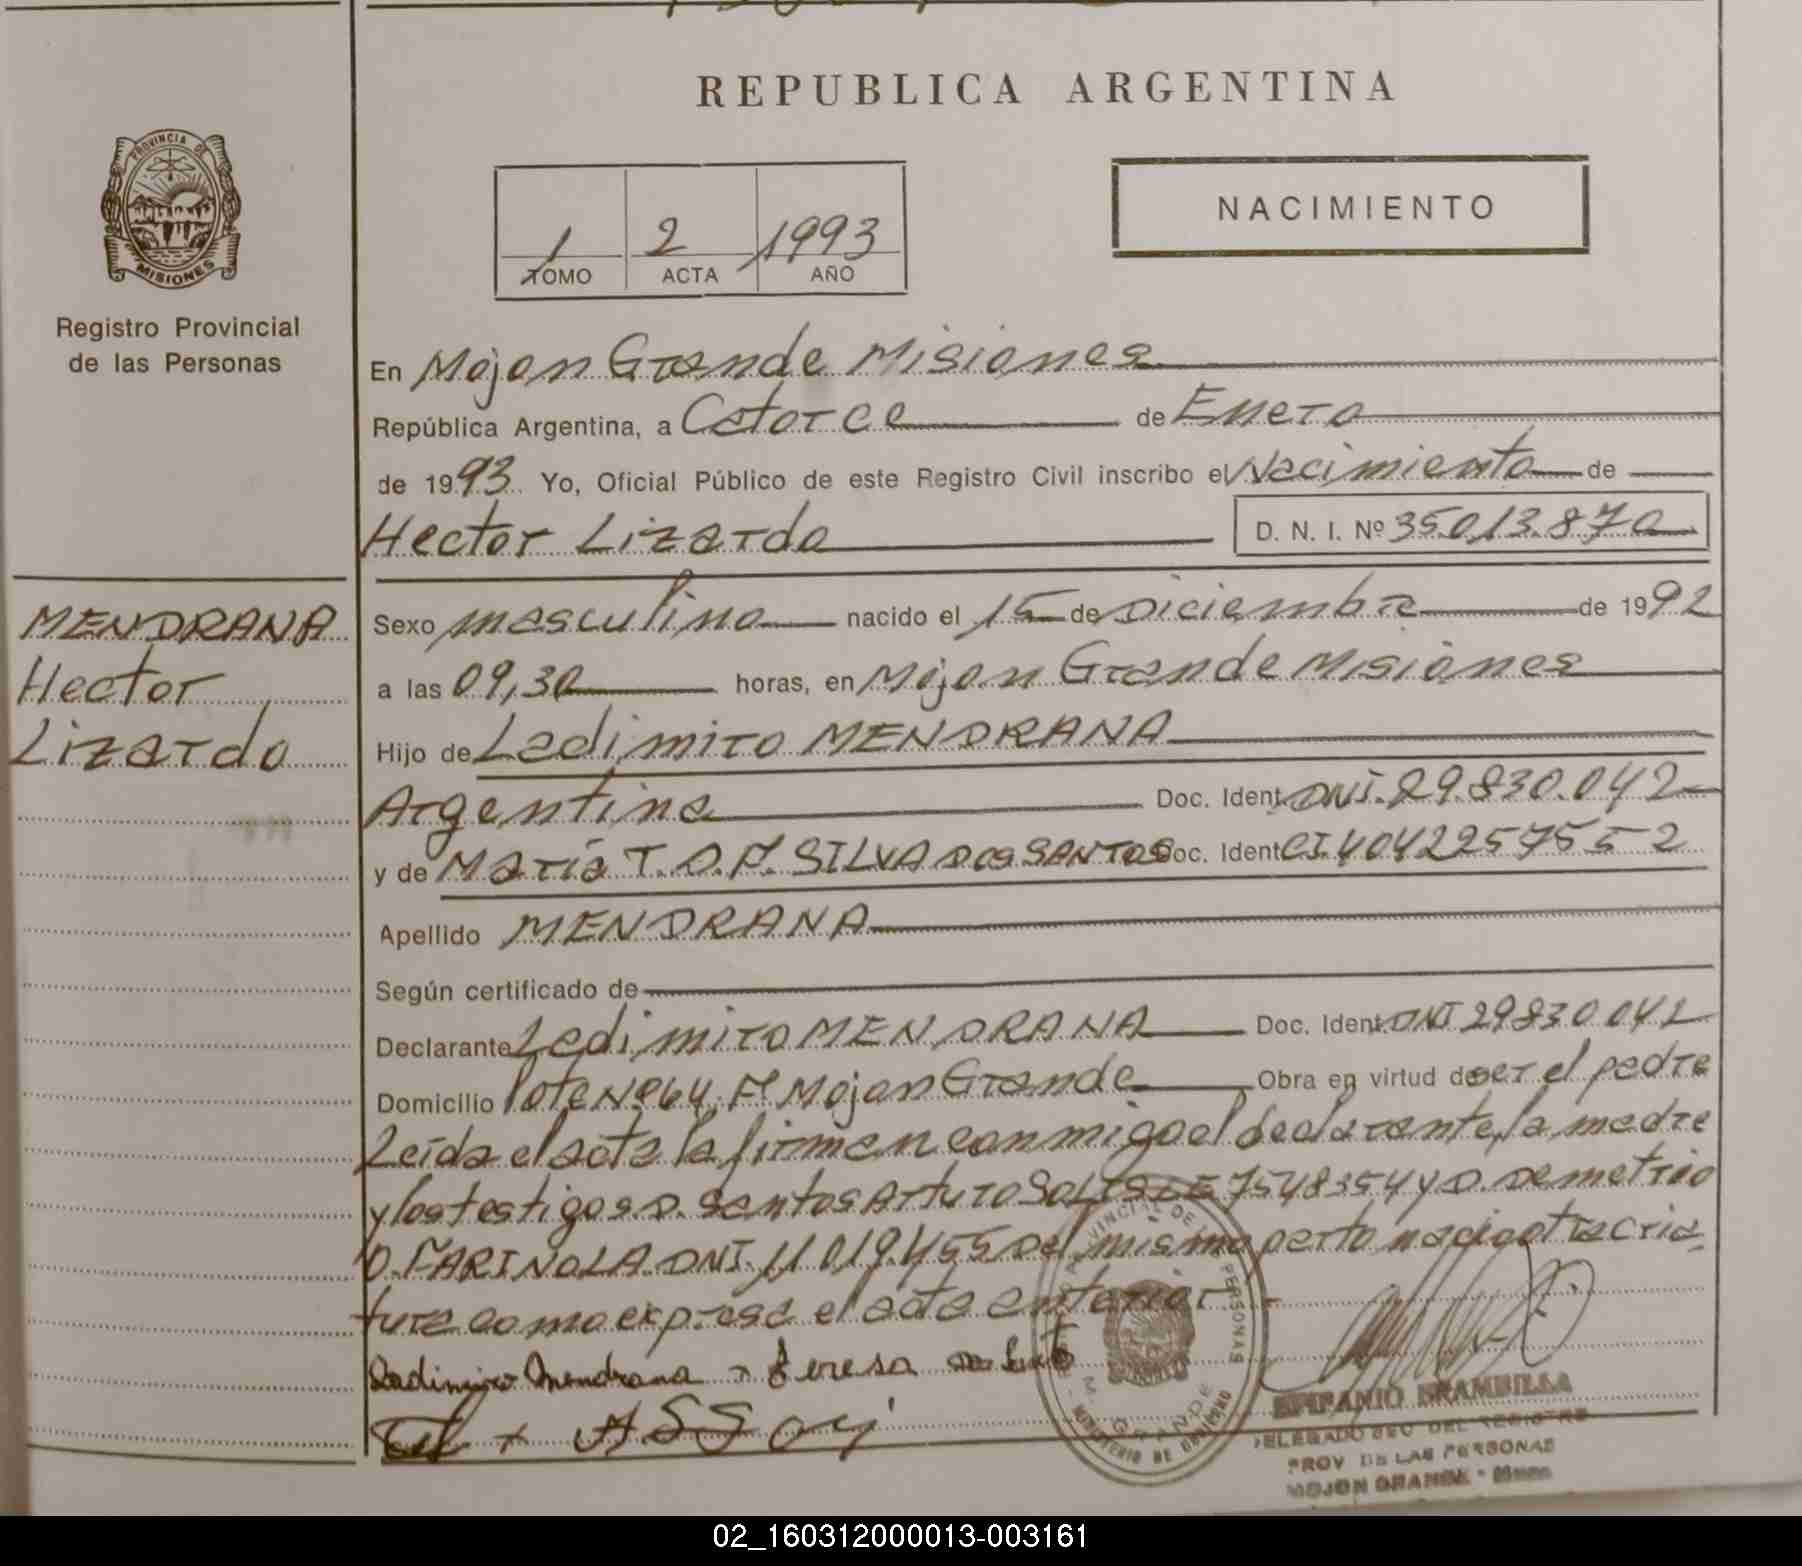 REPUBLICA ARGENTINA
PROVINCIA DE
MISIONES
Registro Provincial
de las Personas
1 2 1993
TOMO ACTA AÑO
NACIMIENTO
En Mojon Grande Misiones
República Argentina, a Catorce de Enero
de 1993 Yo, Oficial Público de este Registro Civil inscribo el Nacimiento de
Hector Lizardo D. N. I. Nº 35.013.870
MENDRANA
Hector
Lizardo
Sexo masculino nacido el 15 de Diciembre de 1992
a las 09,30 horas, en Mojon Grande Misiones
Hijo de Ladimiro MENDRANA
Argentina Doc. Ident. DNI. 29.830.042
y de María T. D. F. SILVA DOS SANTOS Doc. Ident. CI. 4042257552
Apellido MENDRANA
Según certificado de
Declarante Ladimiro MENDRANA Doc. Ident. DNI 29830042
Domicilio lote Nº 64, Mojon Grande Obra en virtud de ser el padre
Leída el acta la firman conmigo el declarante, la madre
y los testigos D. Santos Arturo SOLIS LE 7548354 y D. Demetrio
O. FARINOLA DNI. 11.019.455 Del mismo parto nacio otra cria-
tura como expresa el acta anterior
Ladimiro Mendrana Teresa
EPIFANIO BRAMBILLA
DELEGADO SEC DEL REGISTRO
PROV DE LAS PERSONAS
MOJON GRANDE - Mnes
M. GRANDE
MINISTERIO DE GOBIERNO
02_160312000013-003161